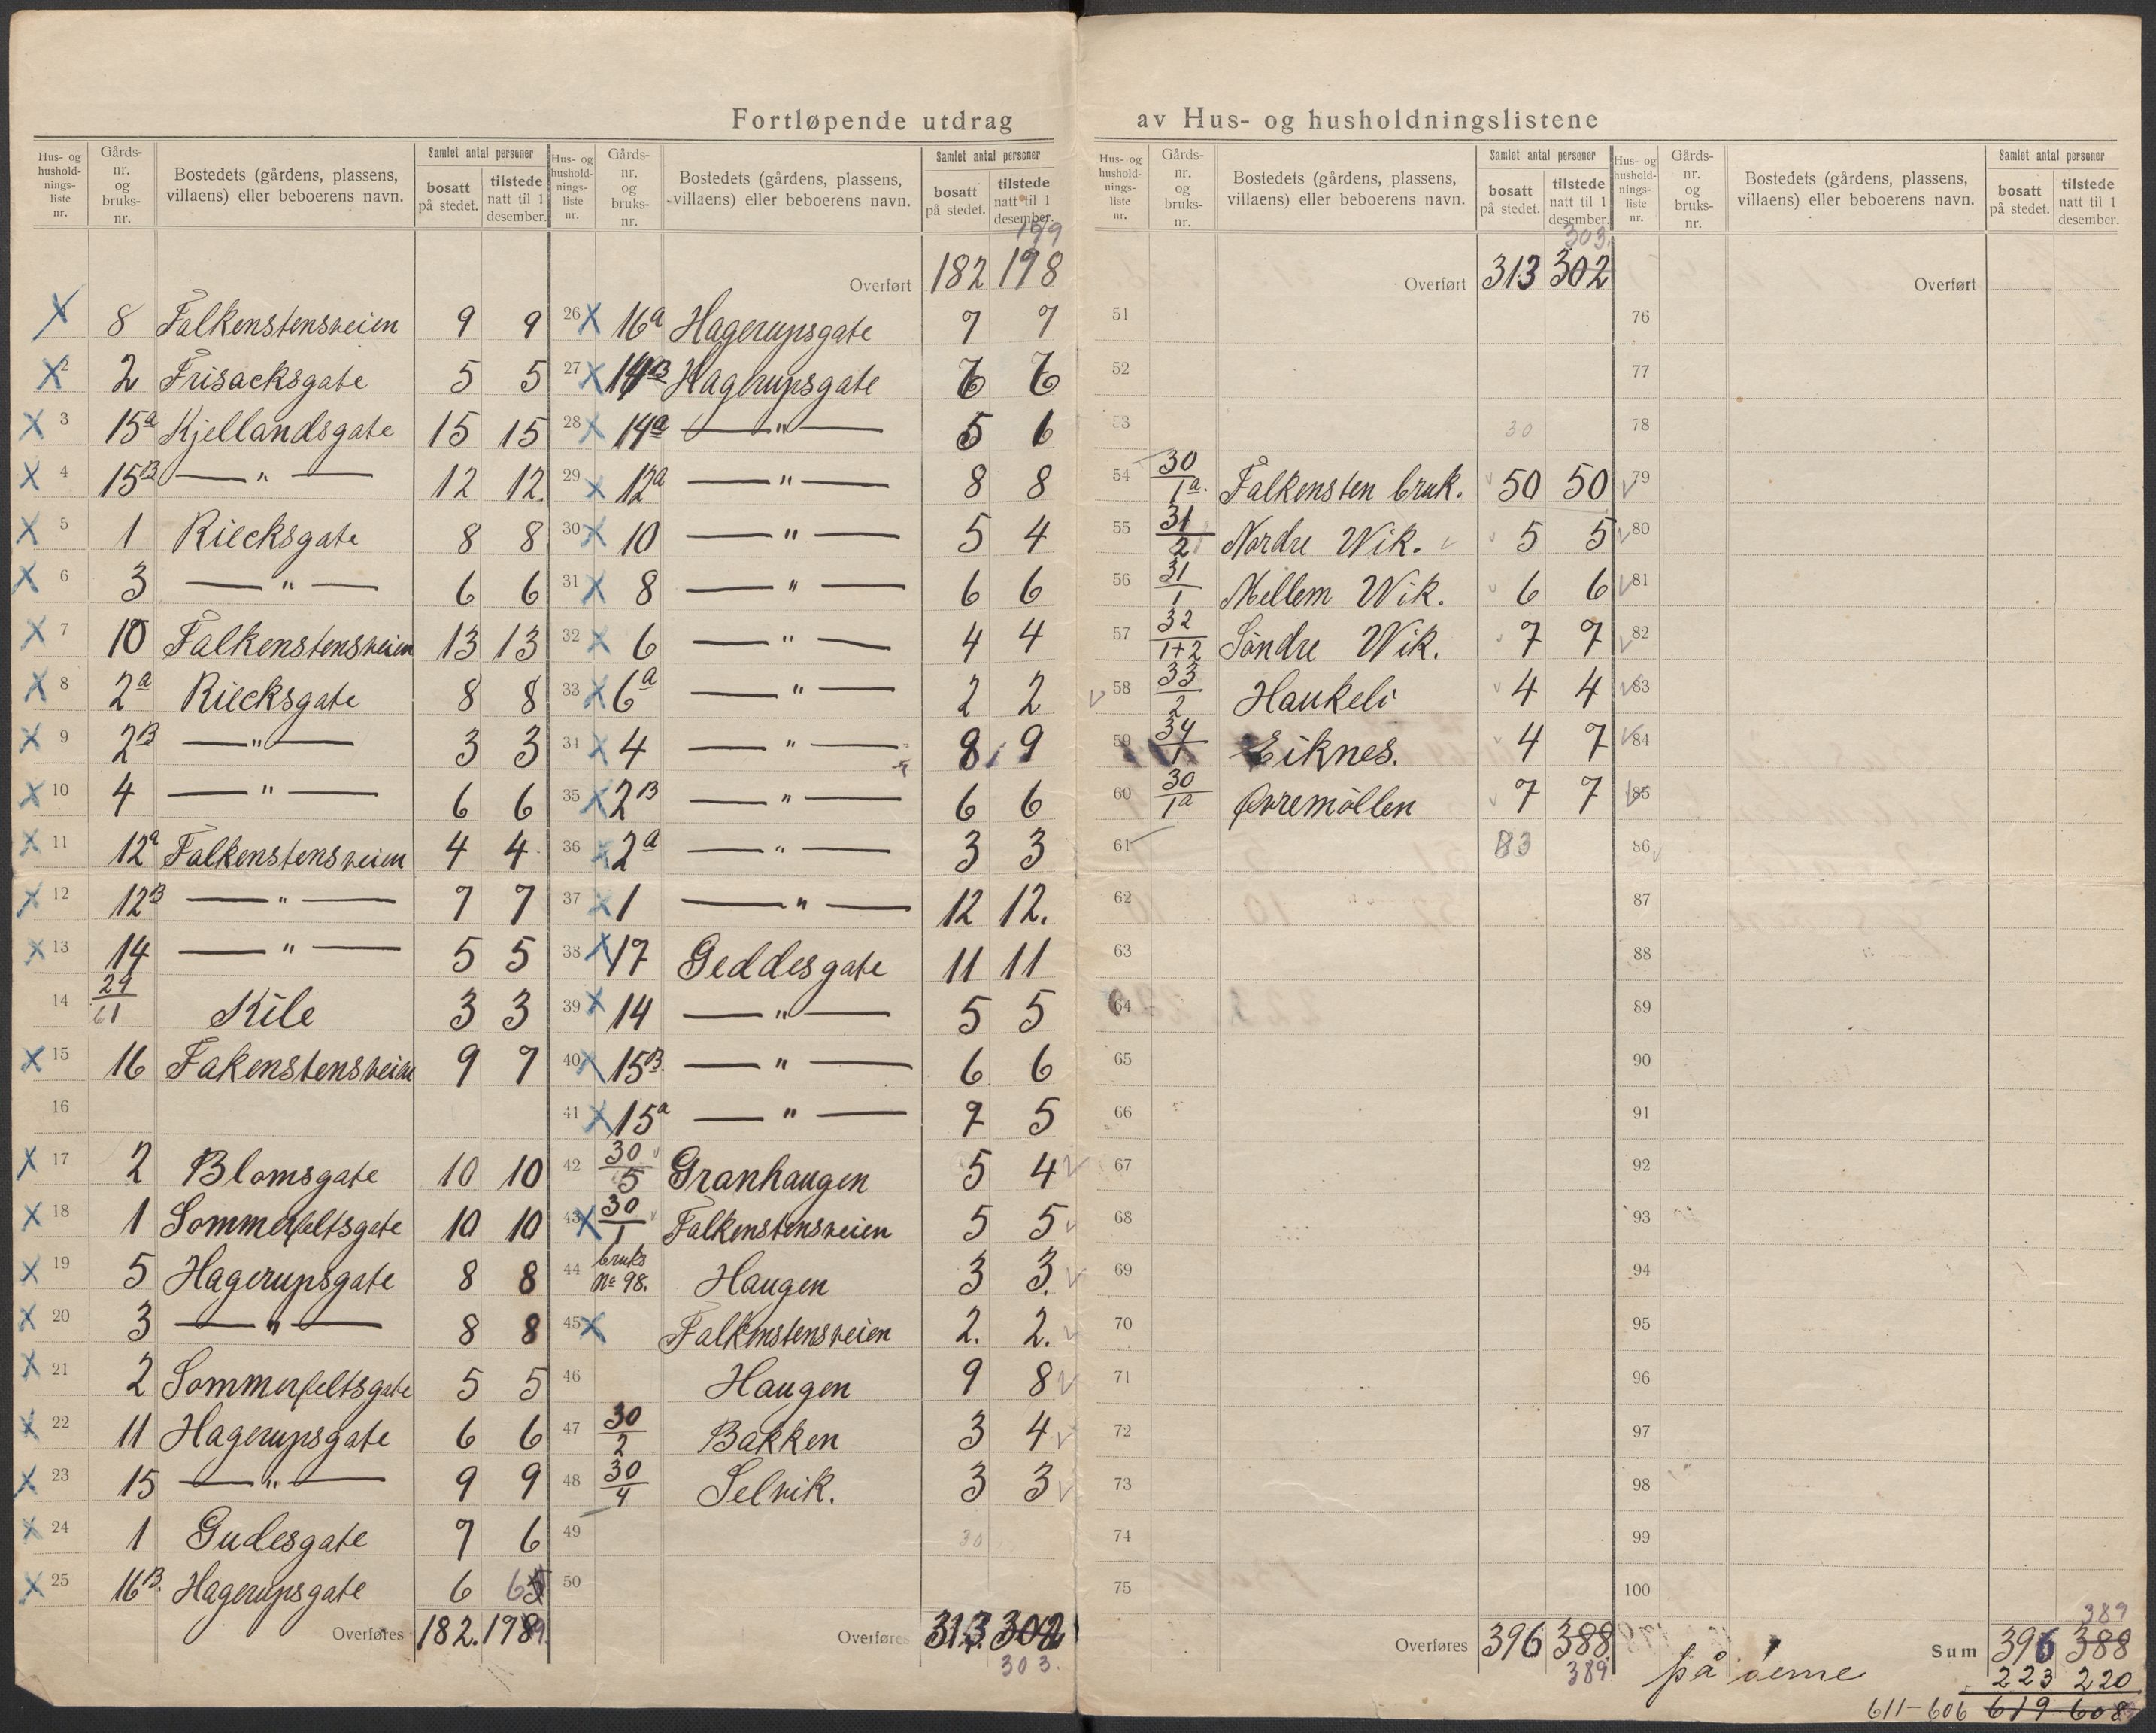 Fortløpende utdrag av Hus- og husholdningslistene
Hus- og husholdnings-liste nr. | Gårds-nr. og bruks-nr. | Bostedets (gårdens, plassens, villaens) eller beboerens navn. | Samlet antal personer | bosatt på stedet. | tilstede natt til 1 desember.
8 Falkenstensveien 9 9
2 2 Frisacksgate 5 5
3 15a Kjellandsgate 15 15
4 15B — " — 12 12.
5 1 Rilcksgate 8 8
6 3 — " — 6 6
7 10 Falkenstensveien 13 13
8 2a Rilcksgate 8 8
9 2B — " — 3 3
10 4 — " — 6 6
11 12a Falkenstensveien 4 4
12 12B — " — 7 7
13 14 — " — 5 5
14 29/61 Kile 3 3
15 16 Fakenstensveien 9 7
16
17 2 Blomsgate 10 10
18 1 Sommerfeltsgate 10 10
19 5 Hagerupsgate 8 8
20 3 — " — 8 8
21 2 Sommerfeltsgate 5 5
22 11 Hagerupsgate 6 6
23 15 — " — 9 9
24 1 Gudesgate 7 6
25 16B. Hagerupsgate 6 6
Overføres 182. 179
Hus- og husholdnings-liste nr. | Gårds-nr. og bruks-nr. | Bostedets (gårdens, plassens, villaens) eller beboerens navn. | Samlet antal personer | bosatt på stedet. | tilstede natt til 1 desember.
179
Overført 182 178
26 16a Hagerupsgate 7 7
27 14B Hagerupsgate 6 6
28 14a — " — 5 6
29 12a — " — 8 8
30 10 — " — 5 4
31 8 — " — 6 6
32 6 — " — 4 4
33 6a — " — 2 2
34 4 — " — 8 9
35 2B — " — 6 6
36 2a — " — 3 3
37 1 — " — 12 12.
38 17 Geddesgate 11 11
39 14 — " — 5 5
40 15B. — " — 6 6
41 15a — " — 7 5
42 30/5 Granhaugen 5 4
43 30/1 Falkenstensveien 5 5
44 bruks No 98. Haugen 3 3.
45 Falkenstensveien 2. 2.
46 Haugen 9 8
47 30/2 Bakken 3 4
48 30/4 Selvik. 3 3
49 30
50
Overføres 313 302
303.
Hus- og husholdnings-liste nr. | Gårds-nr. og bruks-nr. | Bostedets (gårdens, plassens, villaens) eller beboerens navn. | Samlet antal personer | bosatt på stedet. | tilstede natt til 1 desember.
303.
Overført 313 302
51
52
53 30
54 30/1a. Falkensten bruk. 50 50
55 31/2 Nordre Wik. 5 5
56 31/1 Mellem Wik. 6 6
57 32/1+2 Söndre Wik. 7 7
58 33/2 Haukeli 4 4
59 34/1 Eiknes. 4 7
60 30/1a Övremöllen 7 7
61 83
62
63
64
65
66
67
68
69
70
71
72
73
74
75
Overføres 396 388
389.
Hus- og husholdnings-liste nr. | Gårds-nr. og bruks-nr. | Bostedets (gårdens, plassens, villaens) eller beboerens navn. | Samlet antal personer | bosatt på stedet. | tilstede natt til 1 desember.
Overført
76
77
78
79
80
81
82
83
84
85
86
87
88
89
90
91
92
93
94
95
96
97
98
99
100
389
Sum 396 388
på öerne 223 220
611-606 619 608